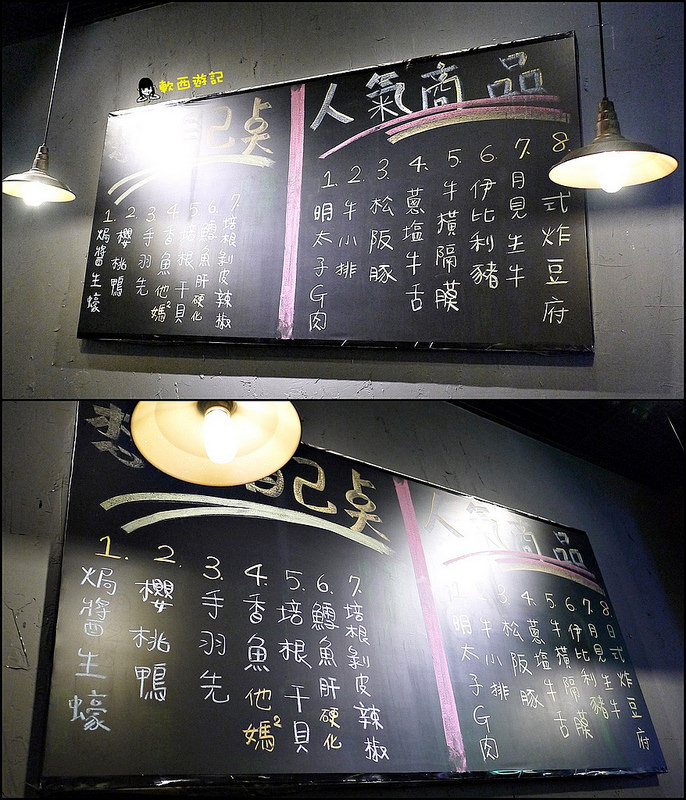 軟西遊記
己点
1. 焗醬生蠔
2. 櫻桃鴨
3. 手羽先
4. 香魚他媽²
5. 培根干貝
6. 鱈魚肝硬化
7. 培根剝皮辣椒
人氣商品
1. 明太子G肉
2. 牛小排
3. 松阪豚
4. 蔥塩牛舌
5. 牛橫隔膜
6. 伊比利豬
7. 月見生牛
8. 式炸豆府
自己点
1. 焗醬生蠔
2. 櫻桃鴨
3. 手羽先
4. 香魚他媽²
5. 培根干貝
6. 鱈魚肝硬化
7. 培根剝皮辣椒
人氣商品
明太子G肉
牛小排
3. 松阪豚
4. 蔥塩牛舌
5. 牛橫隔膜
6. 伊比利豬
7. 月見生牛
8. 日式炸豆府